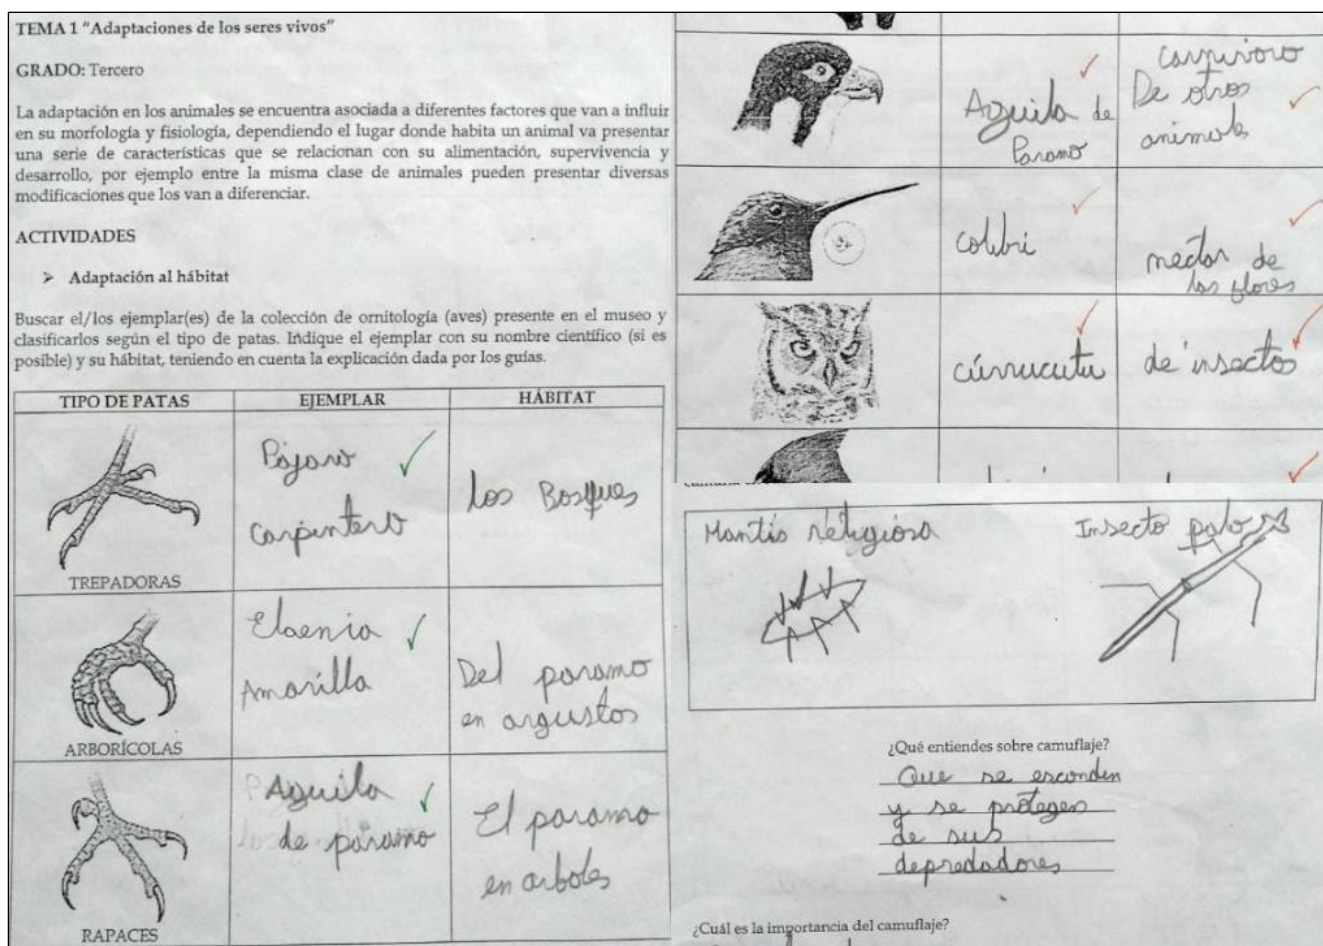 TEMA 1 "Adaptaciones de los seres vivos"
GRADO: Tercero
La adaptación en los animales se encuentra asociada a diferentes factores que van a influir
en su morfología y fisiología, dependiendo el lugar donde habita un animal va presentar
una serie de características que se relacionan con su alimentación, supervivencia y
desarrollo, por ejemplo entre la misma clase de animales pueden presentar diversas
modificaciones que los van a diferenciar.
ACTIVIDADES
➢ Adaptación al hábitat
Buscar el/los ejemplar(es) de la colección de ornitología (aves) presente en el museo y
clasificarlos según el tipo de patas. Indique el ejemplar con su nombre científico (si es
posible) y su hábitat, teniendo en cuenta la explicación dada por los guías.
TIPO DE PATAS EJEMPLAR HÁBITAT
TREPADORAS
Pájaro
Carpintero
los Bosques
ARBORÍCOLAS
Elaenia
Amarilla
Del paramo
en argustos
RAPACES
Aguila
de páramo
El paramo
en arboles
Aguila de
Paramo
Carnivoro
De otros
animales
colibri
nectar de
las flores
cúrrucutu
de insectos
Mantis religiosa
Insecto palo
¿Qué entiendes sobre camuflaje?
Que se esconden
y se protegen
de sus
depredadores
¿Cuál es la importancia del camuflaje?